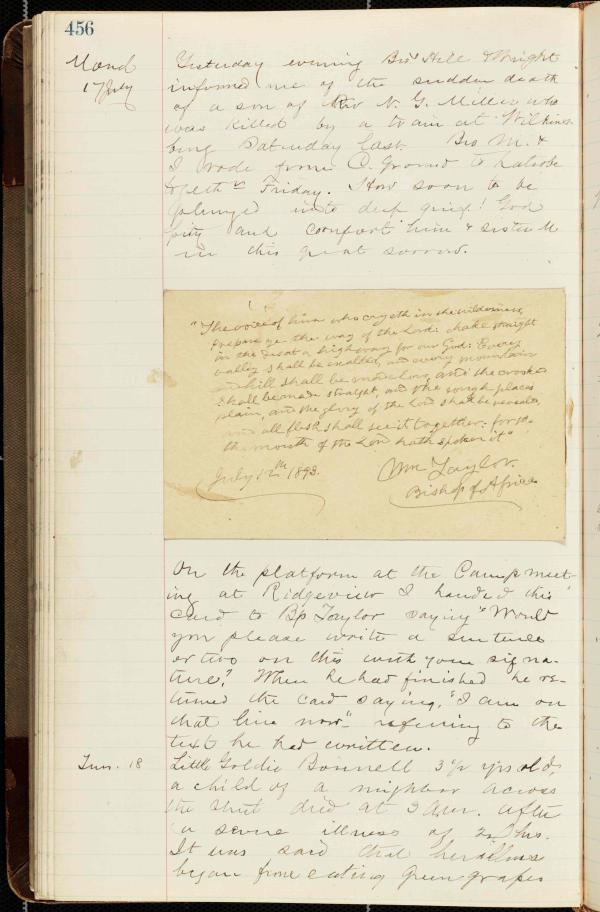 456
Mond
17 July
Yesterday evening Bros Hill & Wright
informed me of the sudden death
of a son of Rev N. G. Miller who
was killed by a train at Wilkins-
burg Saturday last. Bro M. &
I rode from C. Ground to Latrobe
Friday. How soon to be
plunged into deep grief! God
pity and comfort him & sister M
in this great sorrow.
"The voice of him who cryeth in the wilderness,
prepare ye the way of the Lord: make straight
in the desert a highway for our God: Every
valley shall be exalted, and every mountain
and hill shall be made low, and the crooked
shall be made straight, and the rough places
plain, and the glory of the Lord shall be revealed,
and all flesh shall see it together: for the
the mouth of the Lord hath spoken it"
July 12th 1893.
Wm Taylor.
Bishop of Africa
On the platform at the Camp meet-
ing at Ridgeview I handed this
card to Bp Taylor saying "Would
you please write a sentence
or two on this with your signa-
ture?" When he had finished he re-
turned the card saying, "I am on
that line now" referring to the
text he had written.
Tues. 18
Little Goldie Bonnell 3 yrs old,
a child of a neighbor across
the street died at 3 a.m. after
a severe illness of hrs.
It was said that her illness
began from eating green grapes